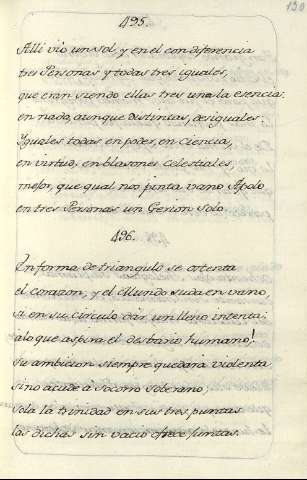 130
495.
Alli vió un sol, y en el con diferencia
tres Personas y todas tres iguales,
que eran siendo ellas tres una la esencia
en nada, aunque distintas, desiguales:
Yguales todas en poder, en ciencia,
en virtud, en blasones celestiales,
mejor, que qual nos pinta vano Apolo
en tres Personas un Gerion solo.
496.
En forma de triangulo se ostenta
el corazon, y el Mundo suda en vano,
si en su circulo dár un lleno intenta:
à lo que aspira el desbario humano!
Su ambicion siempre quedará violenta
sino acude á Socorro Soberano,
sola la trinidad en sus tres puntas
las dichas sin vacio ofrece juntas.